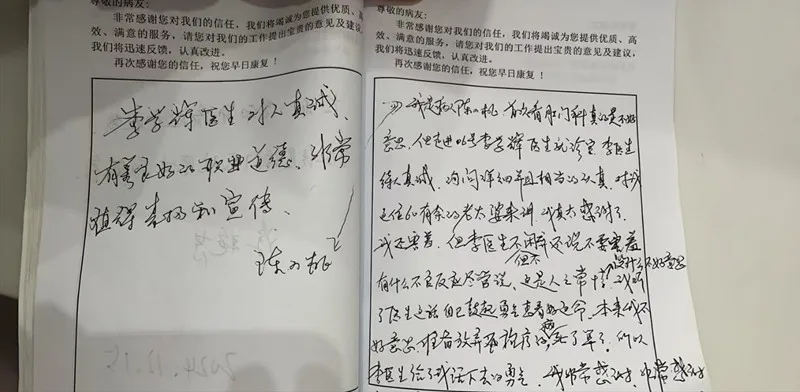 尊敬的病友:
非常感谢您对我们的信任，我们将竭诚为您提供优质、高
效、满意的服务，请您对我们的工作提出宝贵的意见及建议，
我们将迅速反馈，认真改进。
再次感谢您的信任，祝您早日康复！
李学辉医生对人真诚、
有着良好的职业道德、非常
值得表扬和宣传、
尊敬的病友:
非常感谢您对我们的信任，我们将竭诚为您提供优质、高
效、满意的服务，请您对我们的工作提出宝贵的意见及建议，
我们将迅速反馈，认真改进。
再次感谢您的信任，祝您早日康复！
我是病人陈 首次看肛门科真的是不好
意思，但走进 李学辉医生就诊室 李医生
待人真诚，询问详细并且相当的认真，对我
这位 有余的老太婆来讲，我真太感谢了。
我还害羞，但李医生不但不 还说不要害羞
没什么不好意思
有什么不良反应尽管说，这是人之常情，我听
了医生这话自己鼓起勇气 看好这 本来我不
好意思，准备放弃 治疗 死了算了，所以
李医生给了我活下去的勇气，我非常感谢，非常感谢
2024.12.15